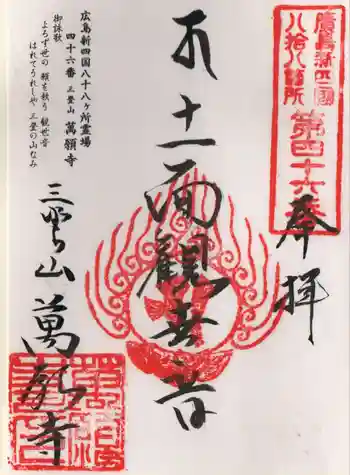 廣島新四國
八拾八ヶ所
第四十六番
奉拝
十一面観世音
広島新四国八十八ヶ所霊場
四十六番 三登山 萬願寺
御詠歌
よろず世の 頼を救う 観世音
はれてうれしや 三登の山なみ
三登山 萬願寺